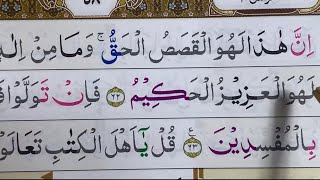 ٥٨
اِنَّ هٰذَا لَهُوَ الْقَصَصُ الْحَقُّ ۚ وَمَا مِنْ اِلٰهٍ
لَهُوَ الْعَزِيْزُ الْحَكِيْمُ ﴿٦٢﴾ فَاِنْ تَوَلَّوْا
بِالْمُفْسِدِيْنَ ﴿٦٣﴾ ع قُلْ يٰٓاَهْلَ الْكِتٰبِ تَعَالَوْا